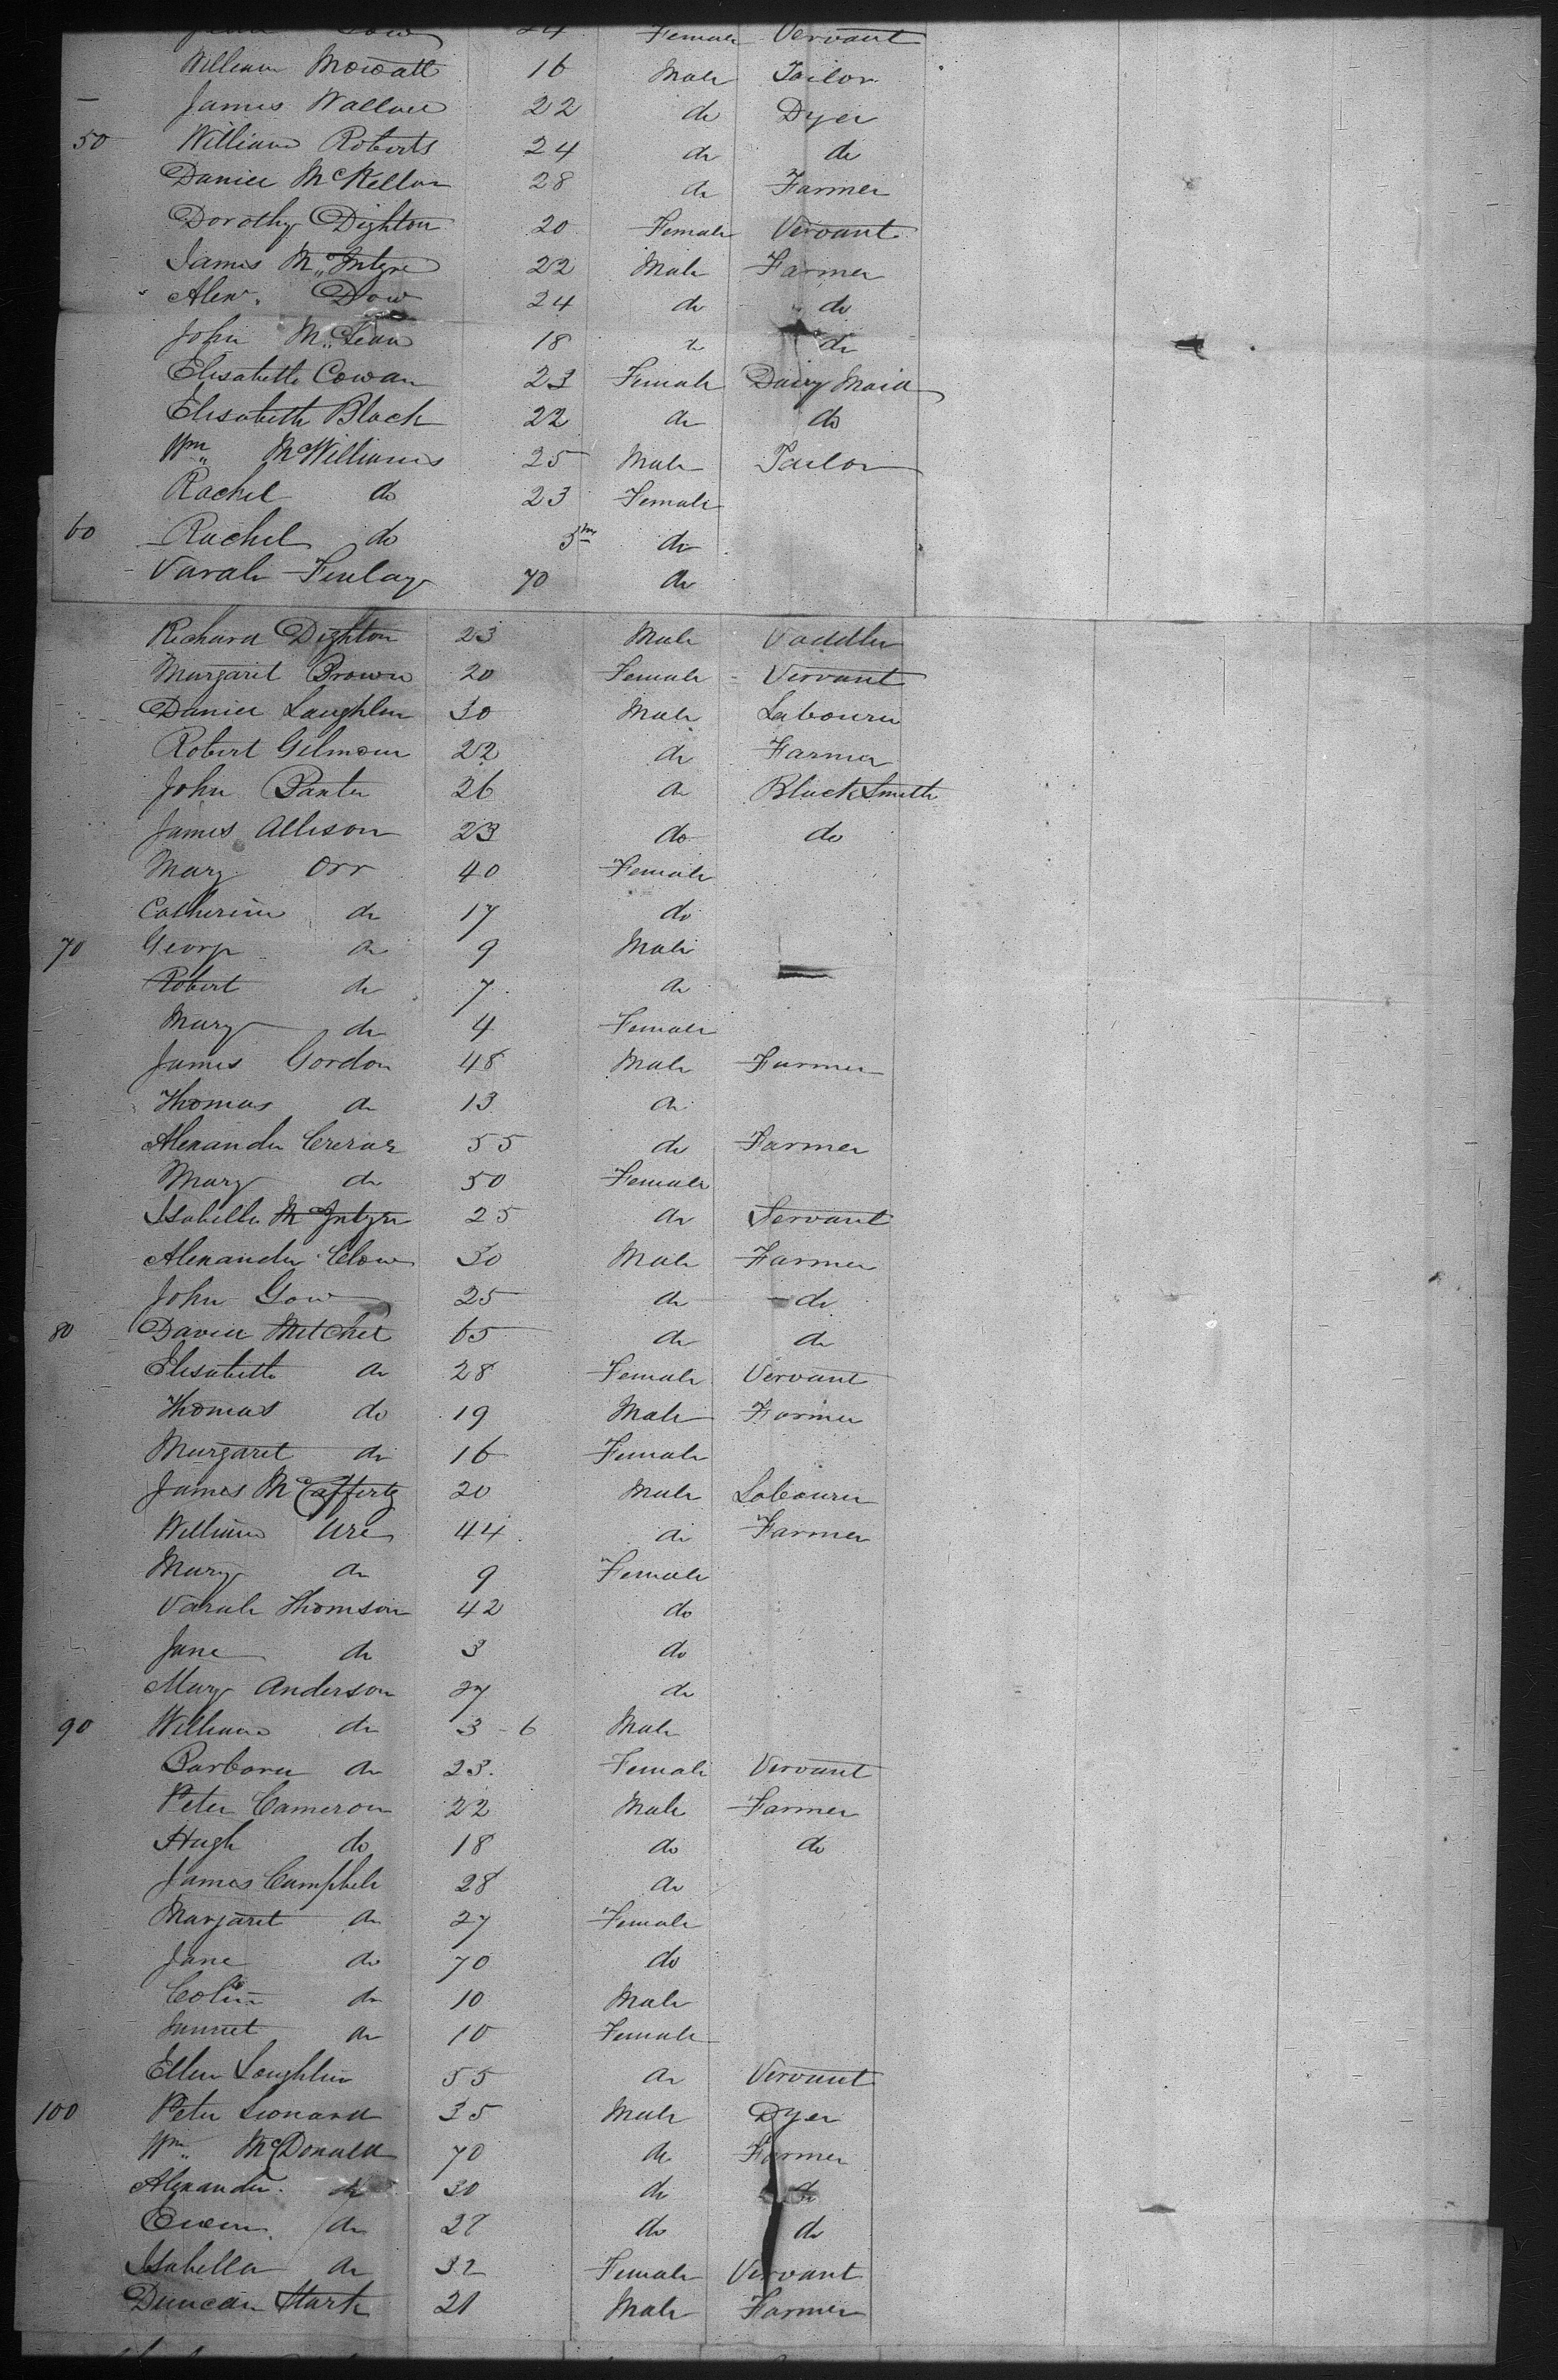 24 Female Servant
William Mowatt 16 Male Tailor
James Wallace 22 do Dyer
50 William Roberts 24 do do
Daniel McKellar 28 do Farmer
Dorothy Dighton 20 Female Servant
James M,,Intyre 22 Male Farmer
Alexr. Dow 24 do do
John M,,Lean 18 do do
Elisabeth Cowan 23 Female Dairy Maid
Elisabeth Black 22 do do
Wm,, McWilliams 25 Male Tailor
Rachel do 23 Female
60 Rachel do 5m do
Sarah Finlay 70 do
Richard Dighton 23 Male Saddler
Margaret Brown 20 Female Servant
Daniel Laughlin 30 Male Labourer
Robert Gilmour 22 do Farmer
John 26 do BlackSmith
James Allison 23 do do
Mary Orr 40 Female
Catherine do 17 do
70 George do 9 Male
Robert do 7 do
Mary do 4 Female
James Gordon 48 Male Farmer
Thomas do 13 do
Alexander Crerar 55 do Farmer
Mary do 50 Female
Isabella McIntyre 25 do Servant
Alexander Clow 30 Male Farmer
John Gow 25 do do
80 David Mitchel 65 do do
Elisabeth do 28 Female Servant
Thomas do 19 Male Farmer
Margaret do 16 Female
James McCafferty 20 Male Labourer
William Ure 44 do Farmer
Mary do 9 Female
Sarah Thomson 42 do
Jane do 3 do
Mary Anderson 27 do
90 William do 3-6 Male
Barbara do 23. Female Servant
Peter Cameron 22 Male Farmer
Hugh do 18 do do
James Campbele 28 do
Margaret do 27 Female
Jane do 70 do
Colin do 10 Male
Jannet do 10 Female
Ellen Laughlin 55 do Servant
100 Peter Leonard 35 Male Dyer
Wm,, McDonald 70 do Farmer
Alexander do 30 do do
Owen do 28 do do
Isabella do 32 Female Servant
Duncan Stark 21 Male Farmer